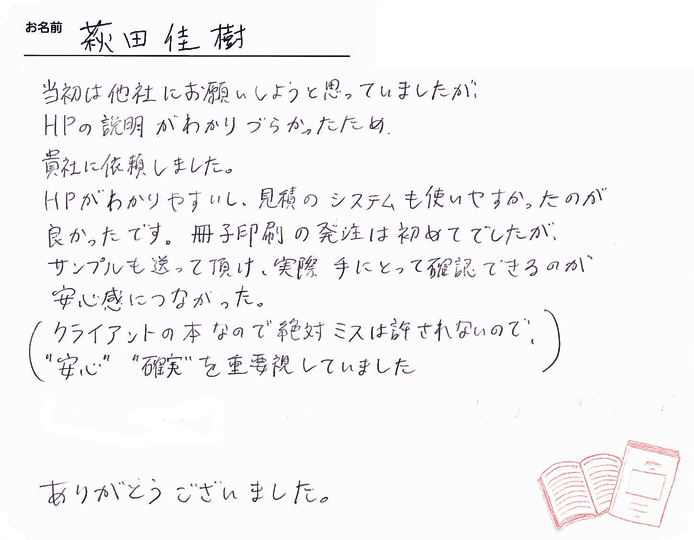 お名前 萩田佳樹
当初は他社にお願いしようと思っていましたが、
HPの説明がわかりづらかったため、
貴社に依頼しました。
HPがわかりやすいし、見積のシステムも使いやすかったのが
良かったです。冊子印刷の発注は初めてでしたが、
サンプルも送って頂け、実際手にとって確認できるのが
安心感につながった。
(クライアントの本なので絶対ミスは許されないので、
"安心" "確実"を重要視していました)
ありがとうございました。